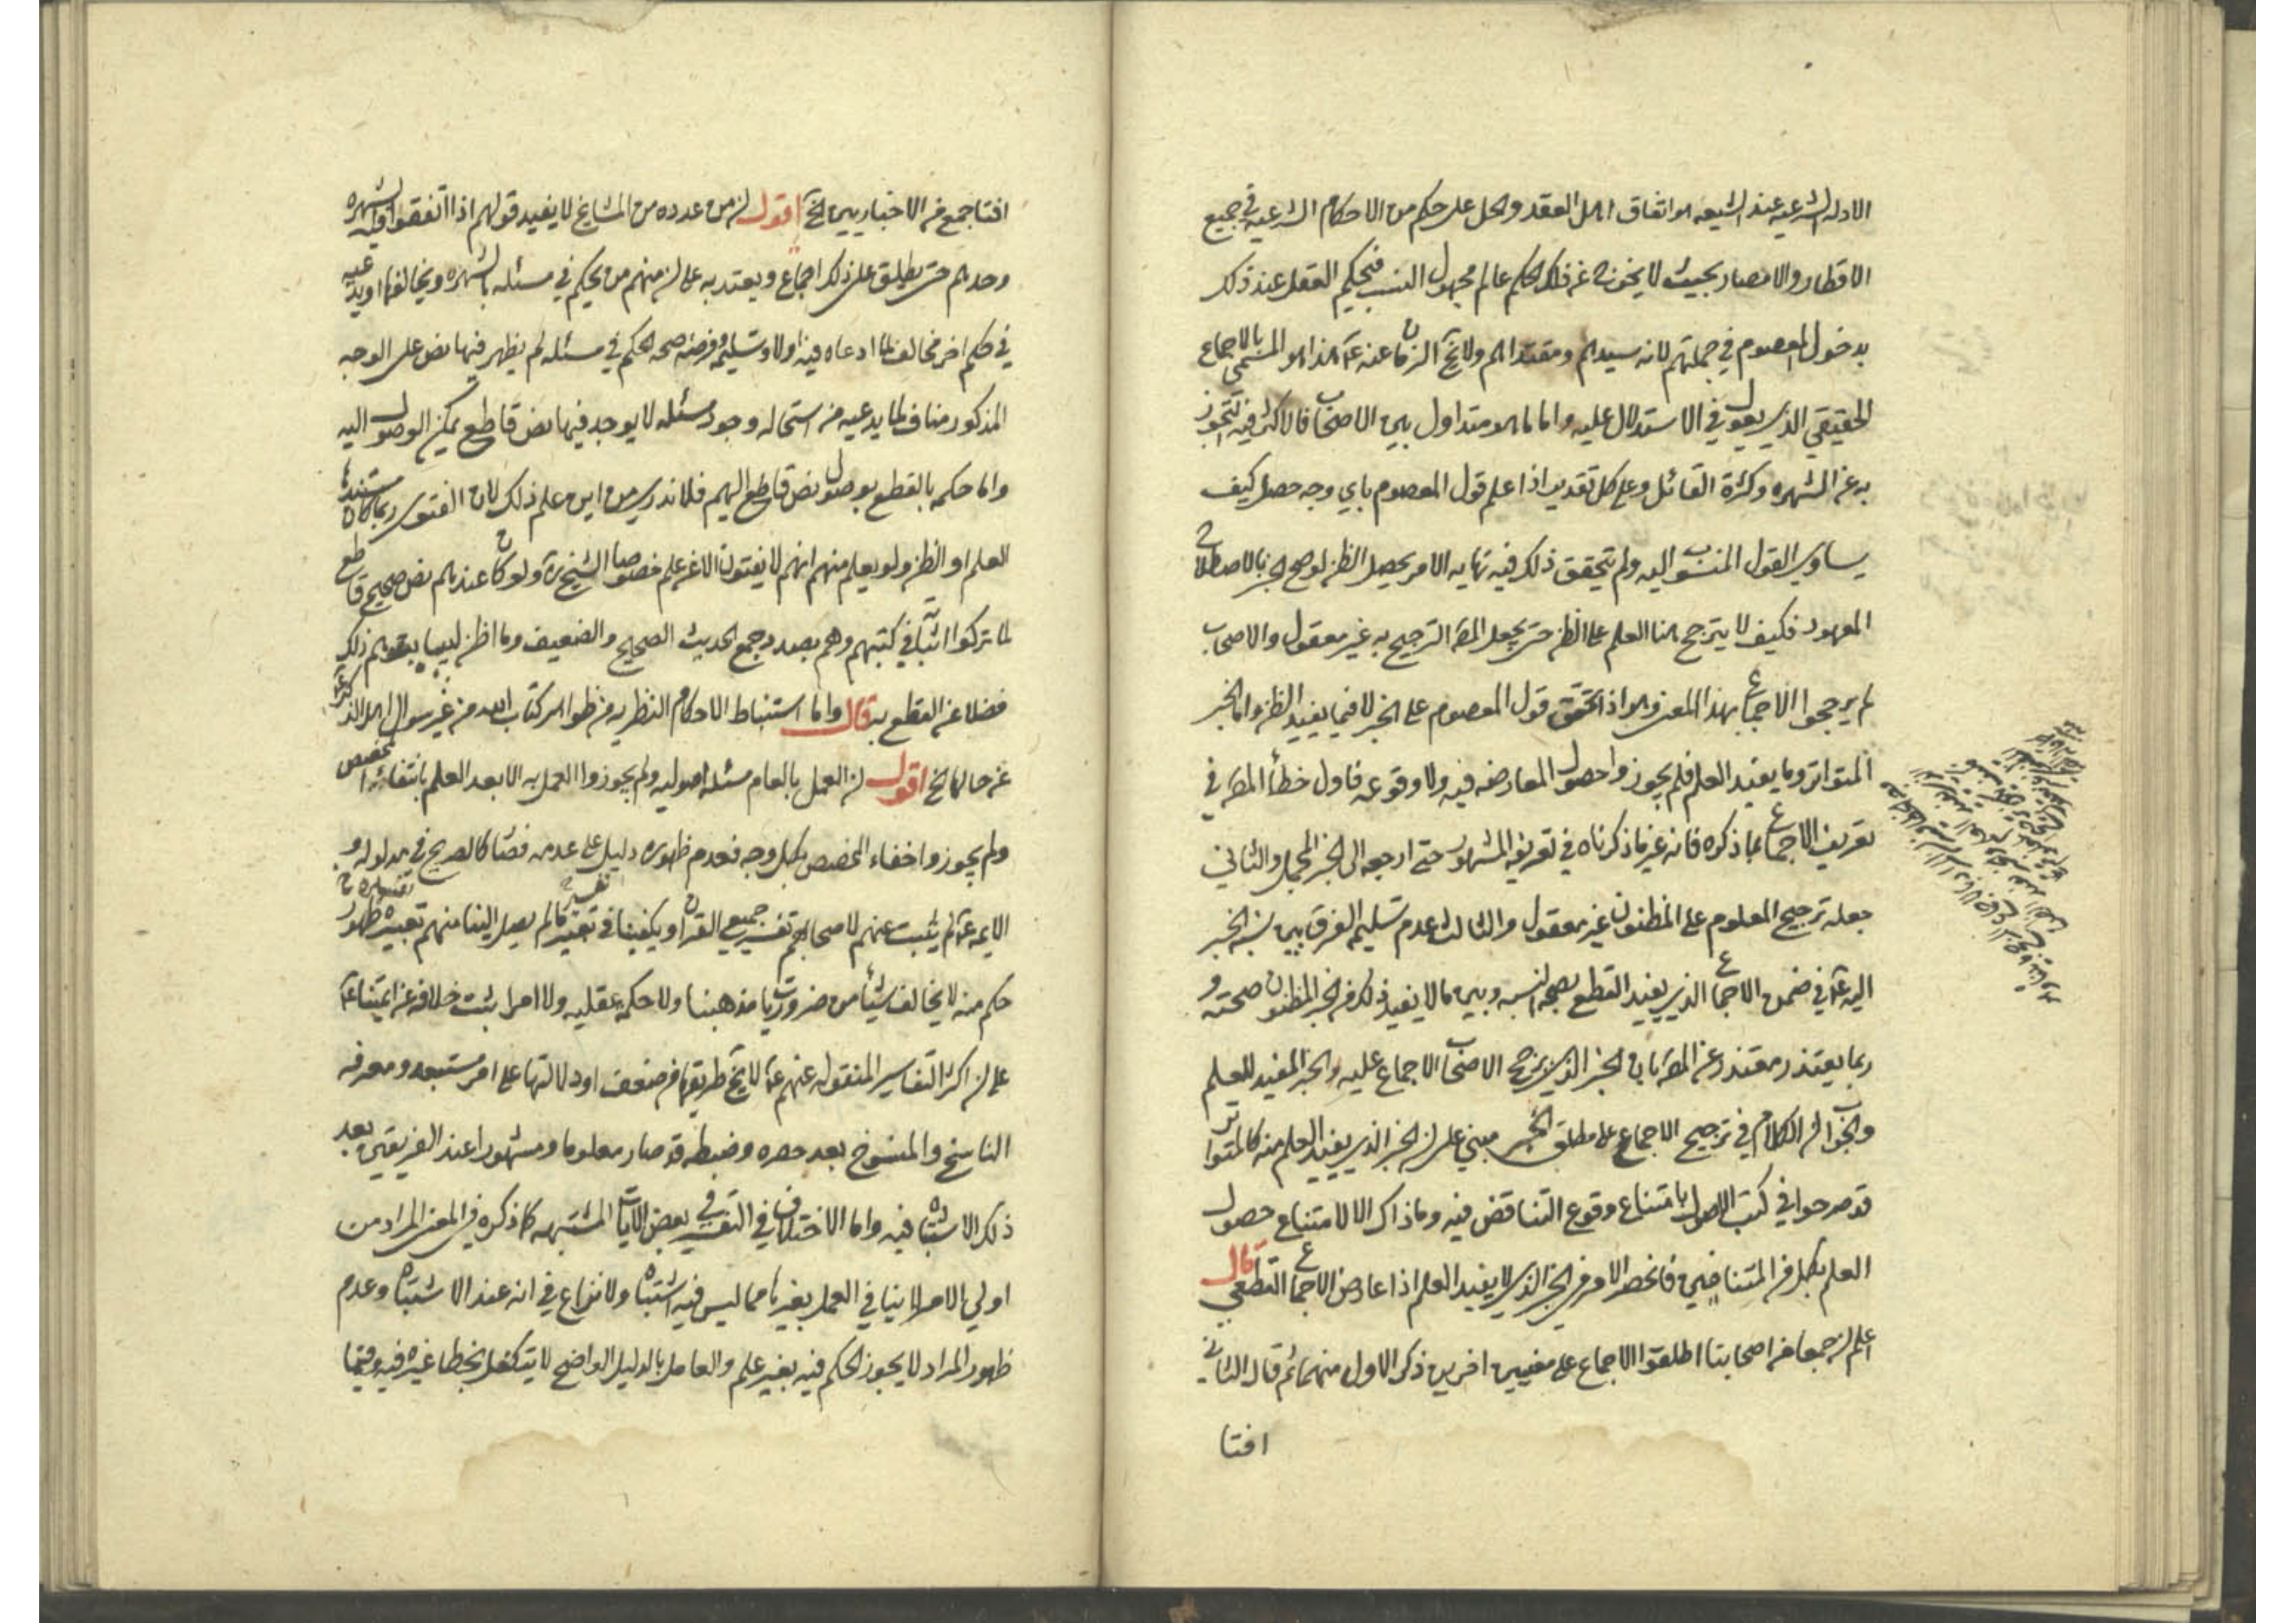 الادله الشرعيه عند الشيعه هو اتفاق اهل العقد والحل على حكم من الاحكام الشرعيه في جميع
الاقطار والامصار بحيث لا يخرج عن ذلك الحكم عالم مجهول النسب فيحكم العقل عند ذلك
بدخول المعصوم في جملتهم لانه سيدهم ومقتداهم ولا يخ الزمان عنه عم هذا هو المسمى بالاجماع
الحقيقي الذي يعول في الاستدلال عليه واما ما هو متداول بين الاصحاب فالاكثر فيه التجوز
به عن الشهره وكثرة القائل وعلى كل تقدير اذا علم قول المعصوم باي وجه حصل كيف
يساوي القول المنسوب اليه ولم يتحقق ذلك فيه نهايه الامر يحصل الظن لو صح الخبر بالاصطلاح
المعهود فكيف لا يترجح هنا العلم على الظن حتى يجعل المص الترجيح به غير معقول والاصحاب
لم يرجحوا الاجماع بهذا المعنى وهو اذ تحقق قول المعصوم على الخبر لا فيما يفيد الظن واما الخبر
المتواتر وما يفيد العلم فلم يجوزوا حصول المعارضه فيه ولا وقوعه فاول خطأ المص في
تعريف الاجماع بما ذكره فانه غير ما ذكرناه في تعريفه المشهور حتى ارجعه الى الخبر المجمل والثاني
جعله ترجيح المعلوم على المظنون غير معقول والثالث عدم تسليم الفرق بين نسبه الخبر
اليه عم في ضمن الاجماع الذي يفيد القطع بصحه النسبه وبين ما لا يفيد ذلك من الخبر المظنون صحته و
ربما يعتذر معتذر عن المص بان الخبر الذي يرجح الاصحاب الاجماع عليه والخبر المفيد للعلم
والجواب ان الكلام في ترجيح الاجماع على مطلق الخبر مبني على ان الخبر الذي يفيد العلم منه كالمتواتر
قد صرحوا في كتب الاصول بامتناع وقوع التناقض فيه وما ذاك الا لامتناع حصول
العلم بكل من المتناقضين فانحصر الامر في الخبر الذي لا يفيد العلم اذا عارض الاجماع القطعي قال
اعلم ان جمعا من اصحابنا اطلقوا الاجماع على معنيين اخرين ذكر الاول منهما ثم قال الثاني
افتا
افتا جمع من الاخباريين الخ اقول ان من عدده من المشايخ لا يفيد قولهم اذا اتفقوا فيه الشهره
وحدهم حتى يطلق على ذلك اجماع ويعتد به على ان منهم من يحكم في مسئله بالشهره ويخالفها او يدعيه
في حكم اخر مخالف لما ادعاه فيه اولا وتسليمه وفرضنه صحه الحكم في مسئله لم يظهر فيها نص على الوجه
المذكور مناف لما يدعيه من استحاله وجود مسئله لا يوجد فيها نص قاطع يمكن الوصول اليه
واما حكمه بالقطع بوصول نص قاطع اليهم فلا ندري من اين علم ذلك لان الفتوى ربما كان مستندها
العلم او الظن ولو يعلم منهم انهم لا يفتون الا عن علم خصوصا الشيخ ره ولو كان عندهم نص صحيح قاطع
لما تركوا اثباته في كتبهم وهم بصدد جمع الحديث الصحيح والضعيف وما اظن لبيبا يتوهم ذلك
فضلا عن القطع به قال واما استنباط الاحكام النظريه من ظواهر كتاب الله من غير سوال اهل الذكر عم
عن حالها الخ اقول ان العمل بالعام مسئله اصوليه ولم يجوزوا العمل به الا بعد العلم بانتفاء المخصص
ولم يجوزوا خفاء المخصص بكل وجه فعدم ظهوره دليل على عدمه فصار كالصريح في مدلوله و
الايمه عم لم يثبت عنهم لاصحابهم تفسير جميع القران ويكفينا في تفسير ما لم يصل الينا منهم تفسيره ظهور
حكم منه لا يخالف شيئا من ضروريات مذهبنا ولا حكمة عقليه ولا امرا يثبت خلافه عن ايمتنا عم
على ان اكثر التفاسير المنقوله عنهم عم لا يخ طريقها من ضعف او دلالتها على امر مستبعد ومعرفه
الناسخ والمنسوخ بعد حصره وضبطه قد صار معلوما ومشهورا عند الفريقين بعد
ذلك الاشتباه فيه واما الاختلاف في التفسير في بعض الايات المشتبهه كما ذكره في المعنى المراد من
اولي الامر لا ينافي العمل بغيرها مما ليس فيه اشتباه ولا نزاع في انه عند الاشتباه وعدم
ظهور المراد لا يجوز الحكم فيه بغير علم والعامل بالدليل الواضح لا يتكفل بخطا غيره فيه وفيما